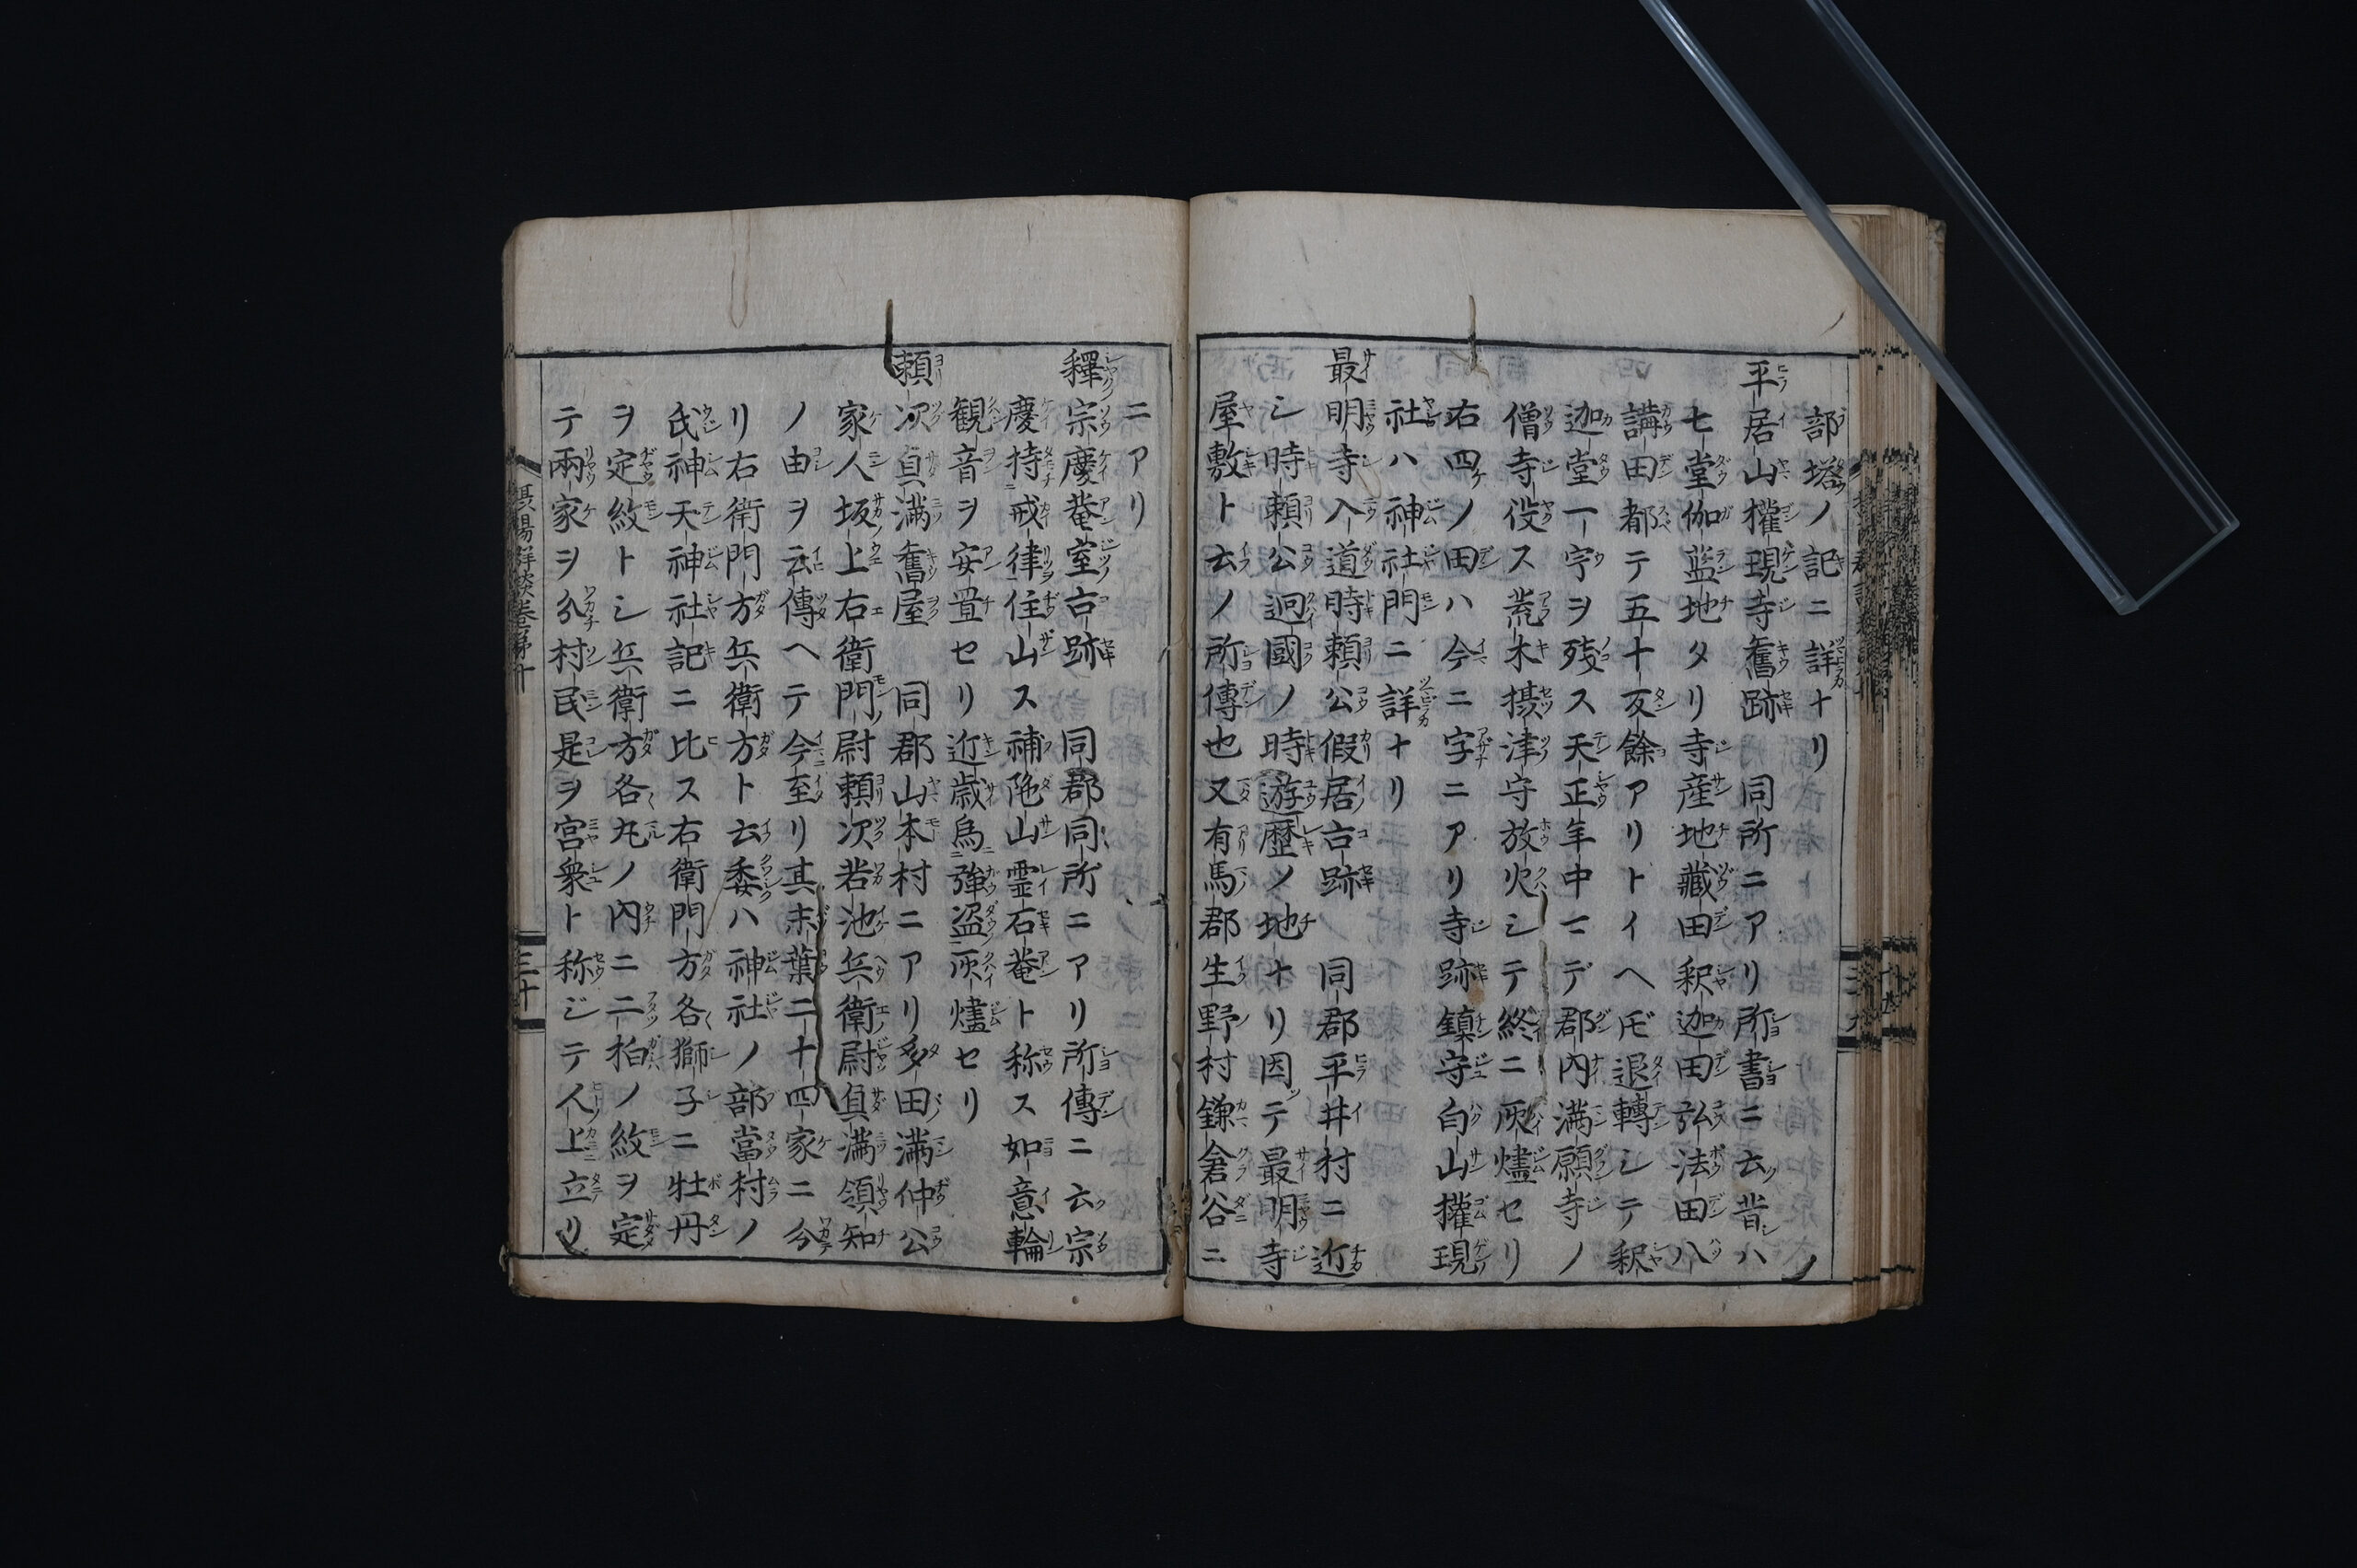 部塔ノ記ニ詳ナリ
平居山權現寺舊跡　同所ニアリ所書ニ云昔ハ
七堂伽藍地タリ寺産地藏田釈迦田弘法田八
講田都テ五十反餘アリトイヘ𪜈退轉シテ釈
迦堂一宇ヲ残ス天正年中マデ郡内満願寺ノ
僧寺役ス荒木摂津守放火シテ終ニ灰燼セリ
右四ノ田ハ今ニ字ニアリ寺跡鎮守白山權現
社ハ神社門ニ詳ナリ
最明寺入道時頼公假居古跡　同郡平井村ニ近
シ時頼公迥國ノ時遊歴ノ地ナリ因テ最明寺
屋敷ト云ノ所傳也又有馬郡生野村鎌倉谷ニ
ニアリ
釋宗慶菴室古跡　同郡同所ニアリ所傳ニ云宗
慶持戒律住山ス補陁山霊石菴ト称ス如意輪
観音ヲ安置セリ近歳為強盗灰燼セリ
頼次貞満舊屋　同郡山本村ニアリ多田満仲公
家人坂上右衛門尉頼次若池兵衛尉貞満領知
ノ由ヲ云傳ヘテ今至リ其末葉二十四家ニ分
リ右衛門方兵衛方ト云委ハ神社ノ部當村ノ
氏神天神社記ニ比ス右衛門方各獅子ニ牡丹
ヲ定紋トシ兵衛方各丸ノ内ニ二柏ノ紋ヲ定
テ兩家ヲ分村民是ヲ宮衆ト称ジテ人上立リ
摂陽群談巻第十
三十